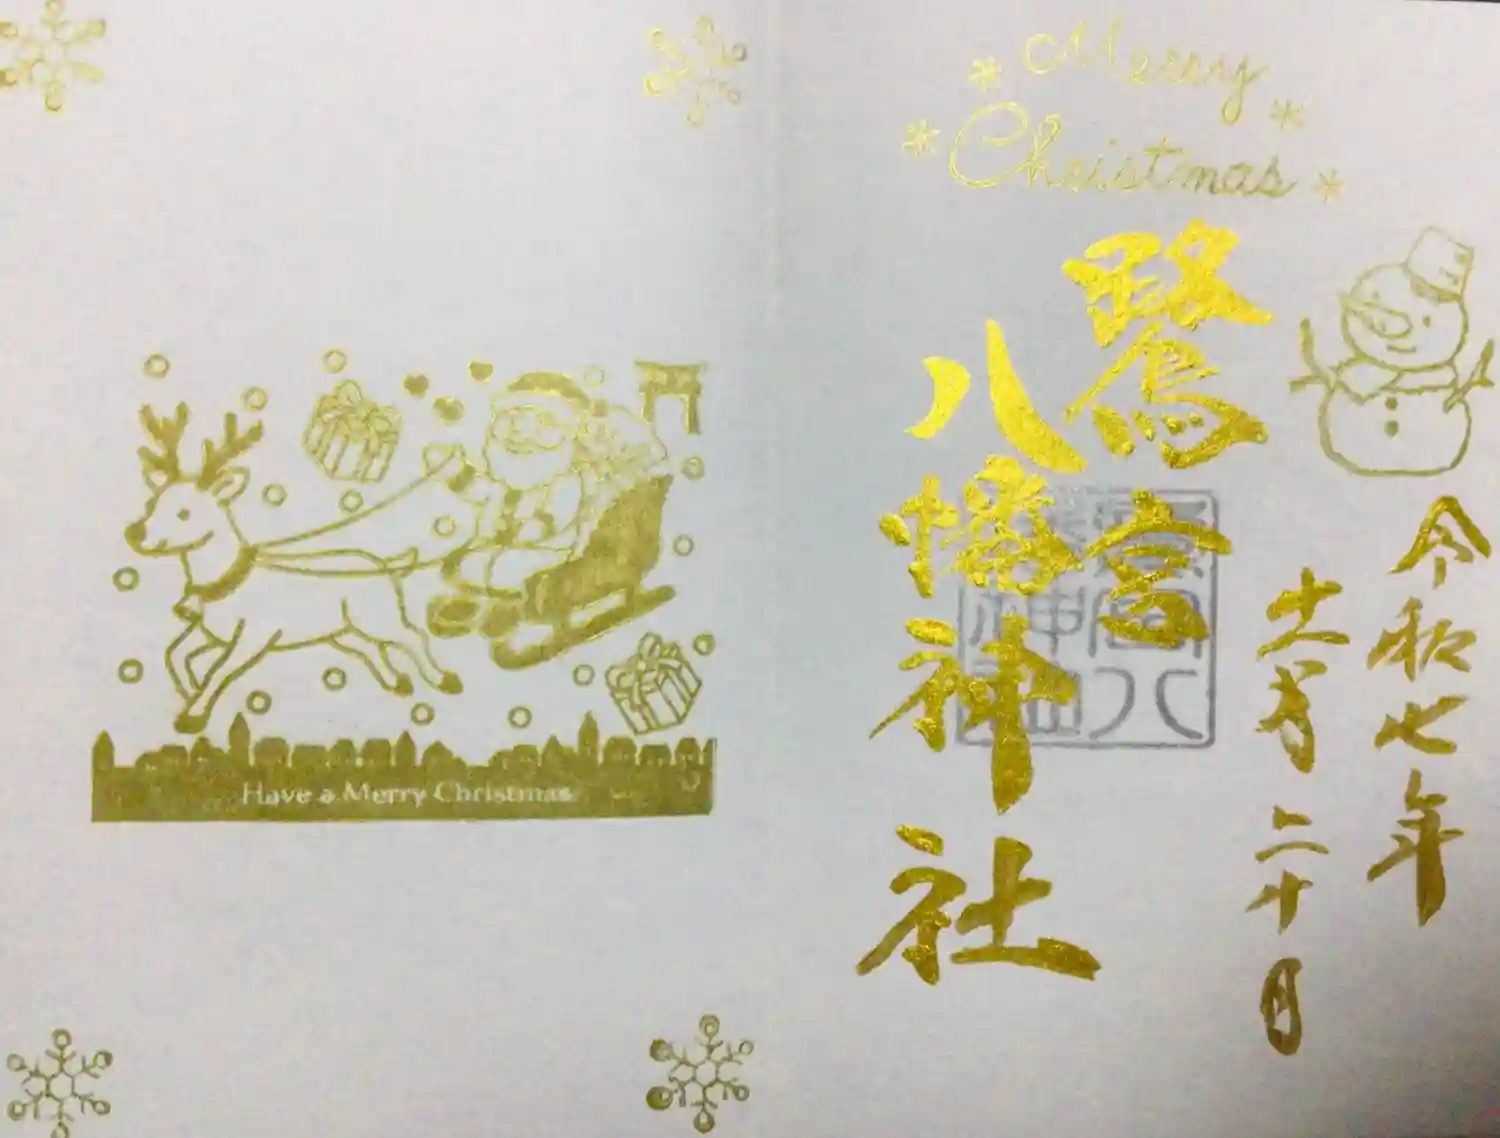 Merry
Christmas
令和七年
十一月二十日
鷺宮
八幡神社
Have a Merry Christmas